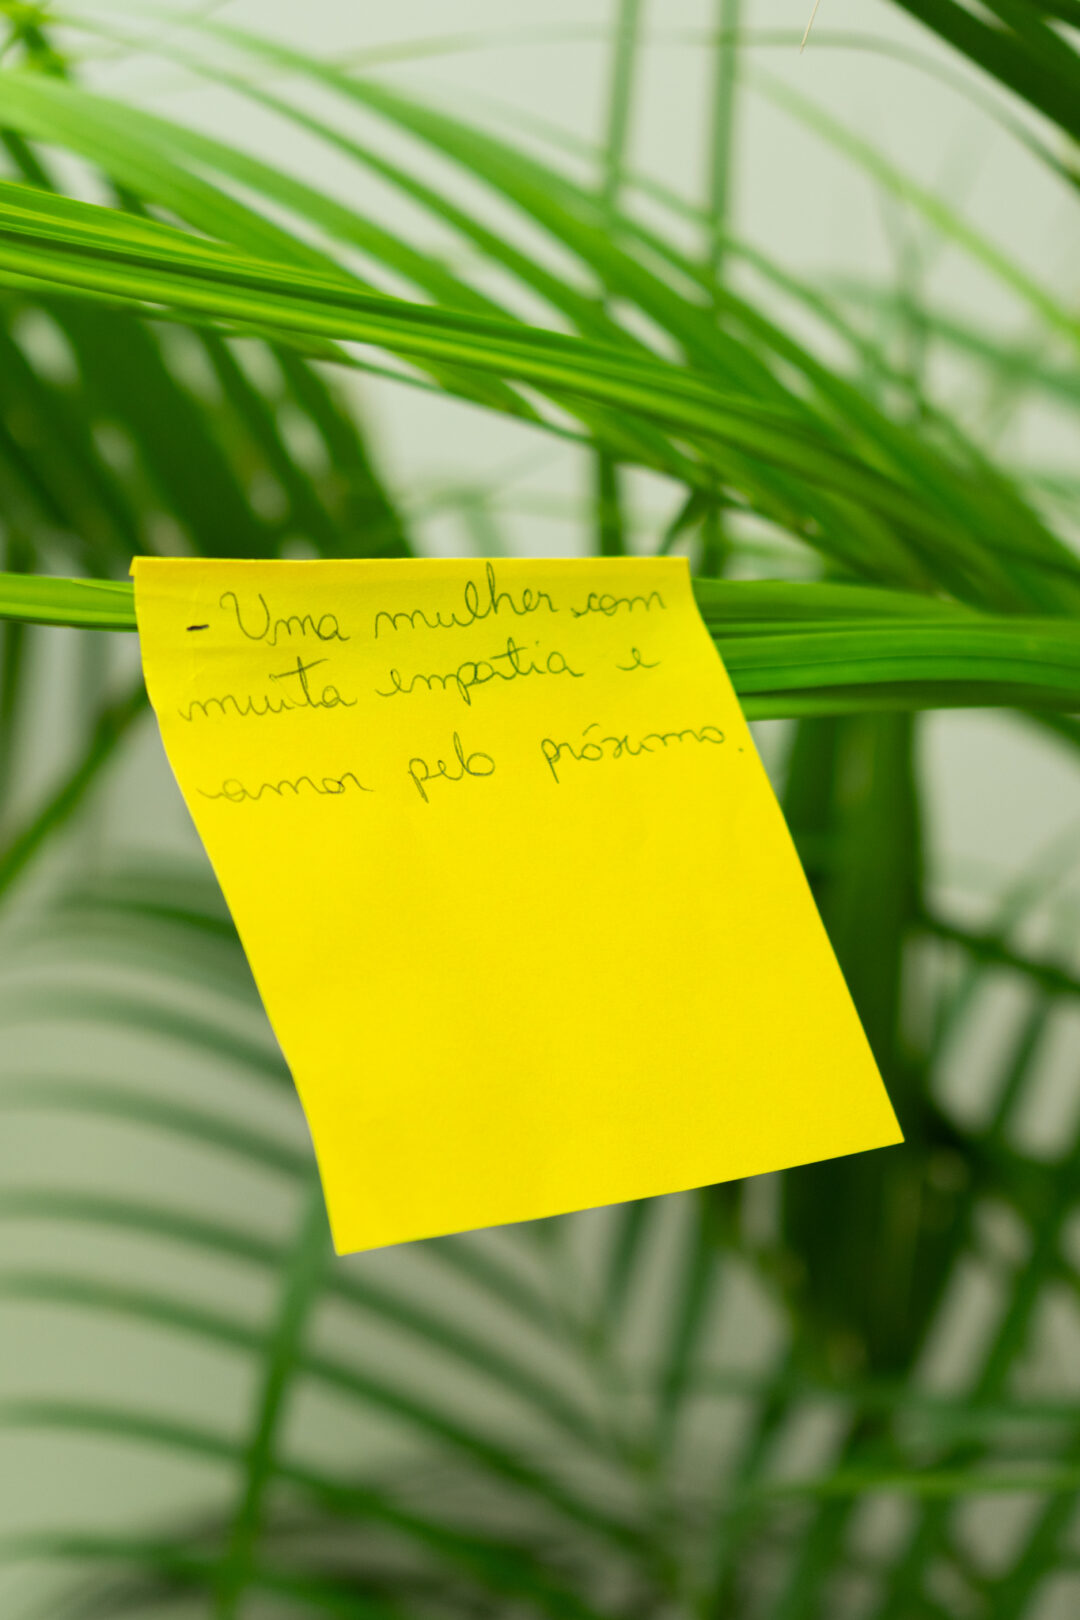 - Uma mulher com
muita empatia e
amor pelo próximo.